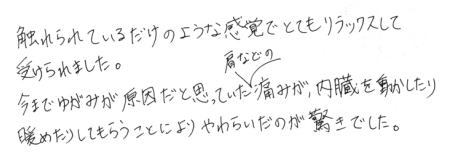 触れられているだけのような感覚でとてもリラックスして
受けられました。
今までゆがみが原因だと思っていた肩などの痛みが、内臓を動かしたり
暖めたりしてもらうことによりやわらいだのが驚きでした。